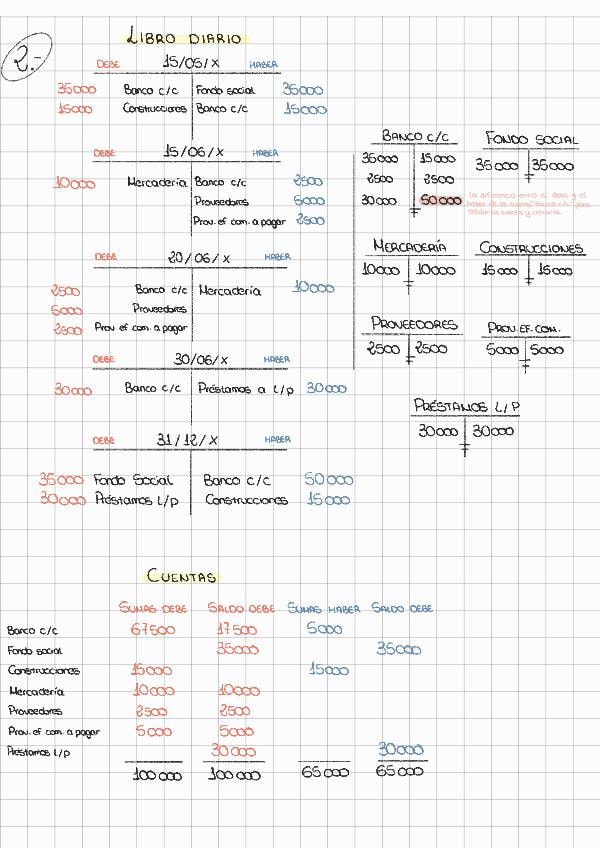 2.-
LIBRO DIARIO
DEBE 15/05/X HABER
35000 Banco c/c Fondo social 35000
15000 Construcciones Banco c/c 15000
DEBE 15/06/X HABER
10000 Mercadería Banco c/c 2500
Proveedores 5000
Prov. ef. com. a pagar 2500
DEBE 20/06/X HABER
2500 Banco c/c Mercadería 10000
5000 Proveedores
2500 Prov. ef com. a pagar
DEBE 30/06/X HABER
30000 Banco c/c Préstamos a L/p 30000
DEBE 31/12/X HABER
35000 Fondo Social Banco c/c 50000
30000 Préstamos L/p Construcciones 15000
BANCO C/C
35000 15000
2500 2500
30000 50000
La diferencia entre el debe y el
haber de la cuenta "Banco c/c" para
saldar la cuenta y cerrarla.
FONDO SOCIAL
35000 35000
MERCADERÍA
10000 10000
CONSTRUCCIONES
15000 15000
PROVEEDORES
2500 2500
PROV. EF. COM.
5000 5000
PRÉSTAMOS L/P
30000 30000
CUENTAS
SUMAS DEBE SALDO DEBE SUMAS HABER SALDO DEBE
Banco c/c 67500 17500 5000
Fondo social 35000 35000
Construcciones 15000 15000
Mercadería 10000 10000
Proveedores 2500 2500
Prov. ef com. a pagar 5000 5000
Préstamos L/p 30000 30000
100000 100000 65000 65000